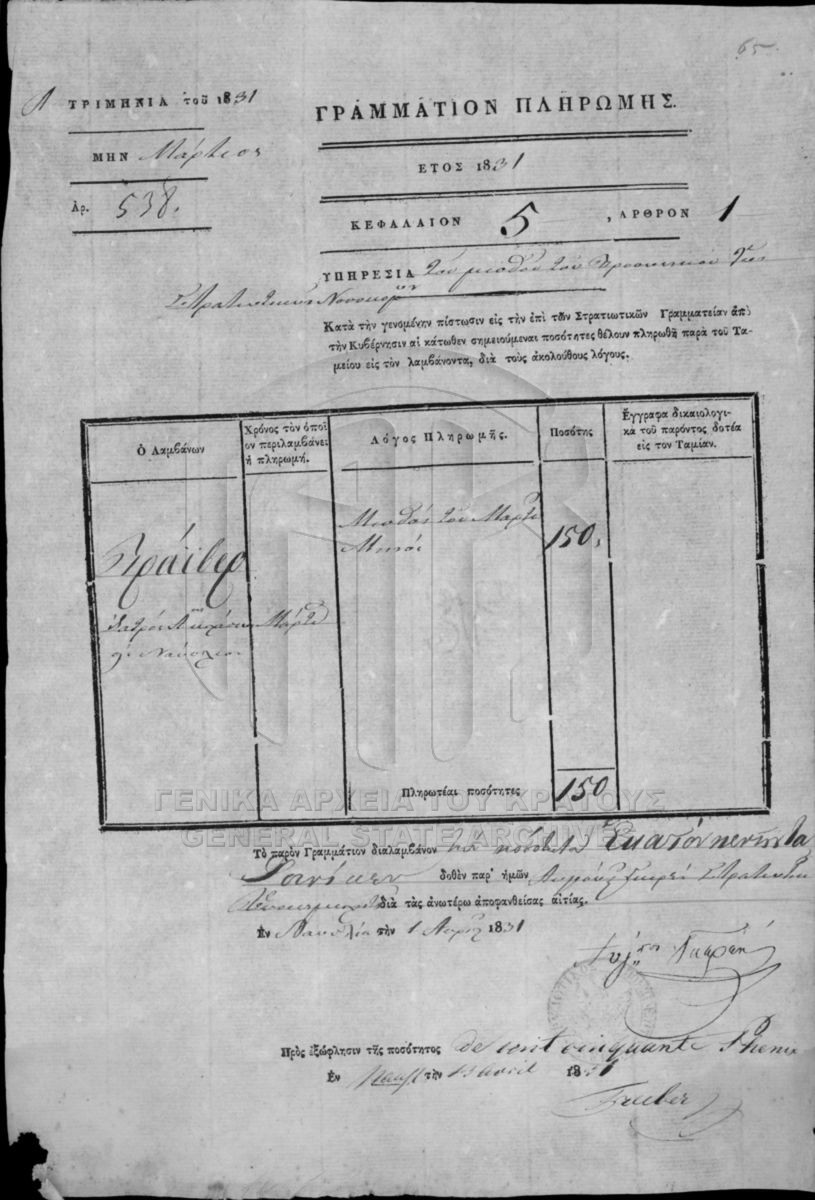 65
Α ΤΡΙΜΗΝΙΑ τοῦ 1831
ΓΡΑΜΜΑΤΙΟΝ ΠΛΗΡΩΜΗΣ.
ΜΗΝ Μάρτιος
ΕΤΟΣ 1831
Ἀρ. 538.
ΚΕΦΑΛΑΙΟΝ 5, ΑΡΘΡΟΝ 1
ΥΠΗΡΕΣΙΑ τοῦ μισθοῦ τοῦ Προσωπικοῦ τῶν
Στρατιωτικῶν Νοσοκομ
Κατὰ τὴν γενομένην πίστωσιν εἰς τὴν ἐπὶ τῶν Στρατιωτικῶν Γραμματείαν ἀπὸ
τὴν Κυβέρνησιν αἱ κάτωθεν σημειούμεναι ποσότητες θέλουν πληρωθῆ παρὰ τοῦ Τα-
μείου εἰς τὸν λαμβάνοντα, διὰ τοὺς ἀκολούθους λόγους.
Ὁ Λαμβάνων
Χρόνος τὸν ὁποῖ
ον περιλαμβάνει
ἡ πληρωμή.
Λόγος Πληρωμῆς.
Ποσότης
Ἔγγραφα δικαιολογι-
κὰ τοῦ παρόντος δοτέα
εἰς τὸν Ταμίαν.
Τράϊβερ
Μάρτ
Μισθός τοῦ Μαρτ
Μηνός
150,
Πληρωτέαι ποσότητες 150
ΓΕΝΙΚΑ ΑΡΧΕΙΑ ΤΟΥ ΚΡΑΤΟΥΣ
GENERAL STATE ARCHIVES
Τὸ παρὸν Γραμμάτιον διαλαμβάνον τὴν ποσότητα Ἑκατὸν πενῆντα
Φοινίκων δοθὲν παρ' ἡμῶν
διὰ τὰς ἀνωτέρω ἀποφανθείσας αἰτίας.
Ἐν Ναυπλίᾳ τὴν 1 Ἀπρ 1831
Πρὸς ἐξώφλησιν τῆς ποσότητος de cent cinquante Phenix
Ἐν τὴν 13 avril 1831